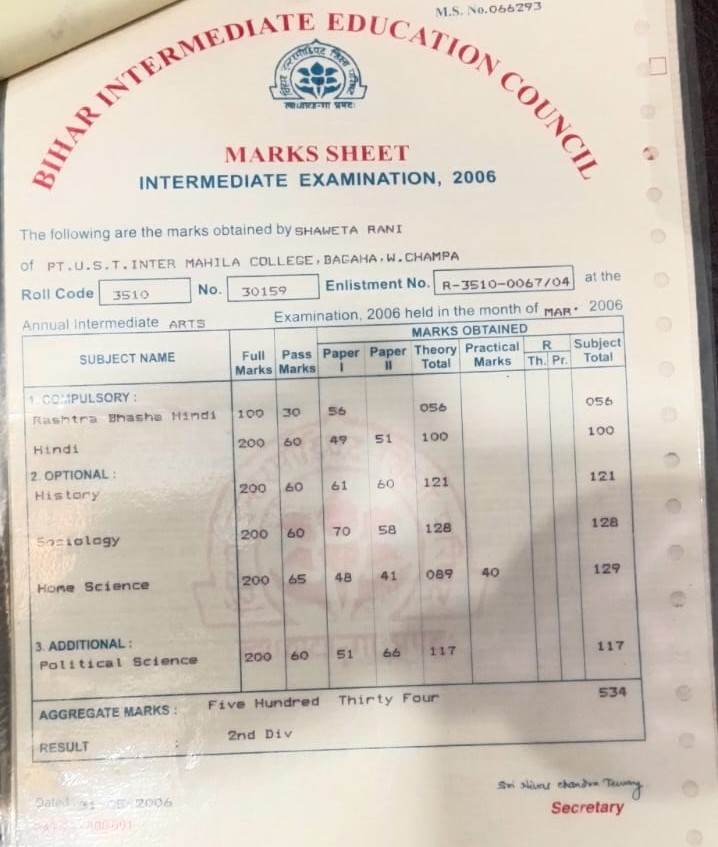 M.S. No.066293
BIHAR INTERMEDIATE EDUCATION COUNCIL
MARKS SHEET
INTERMEDIATE EXAMINATION, 2006
The following are the marks obtained by SHAWETA RANI
of PT.U.S.T.INTER MAHILA COLLEGE,BAGAHA,W.CHAMPA
Roll Code 3510 No. 30159 Enlistment No. R-3510-0067/04 at the
Annual Intermediate ARTS Examination, 2006 held in the month of MAR. 2006
SUBJECT NAME Full Marks Pass Marks MARKS OBTAINED Paper I Paper II Theory Total Practical Marks R Th. Pr. Subject Total
1. COMPULSORY :
Rashtra Bhasha Hindi 100 30 56 056 056
Hindi 200 60 49 51 100 100
2. OPTIONAL :
History 200 60 61 60 121 121
Sociology 200 60 70 58 128 128
Home Science 200 65 48 41 089 40 129
3. ADDITIONAL :
Political Science 200 60 51 66 117 117
AGGREGATE MARKS : Five Hundred Thirty Four 534
RESULT : 2nd Div
Dated 31-05-2006
Secretary